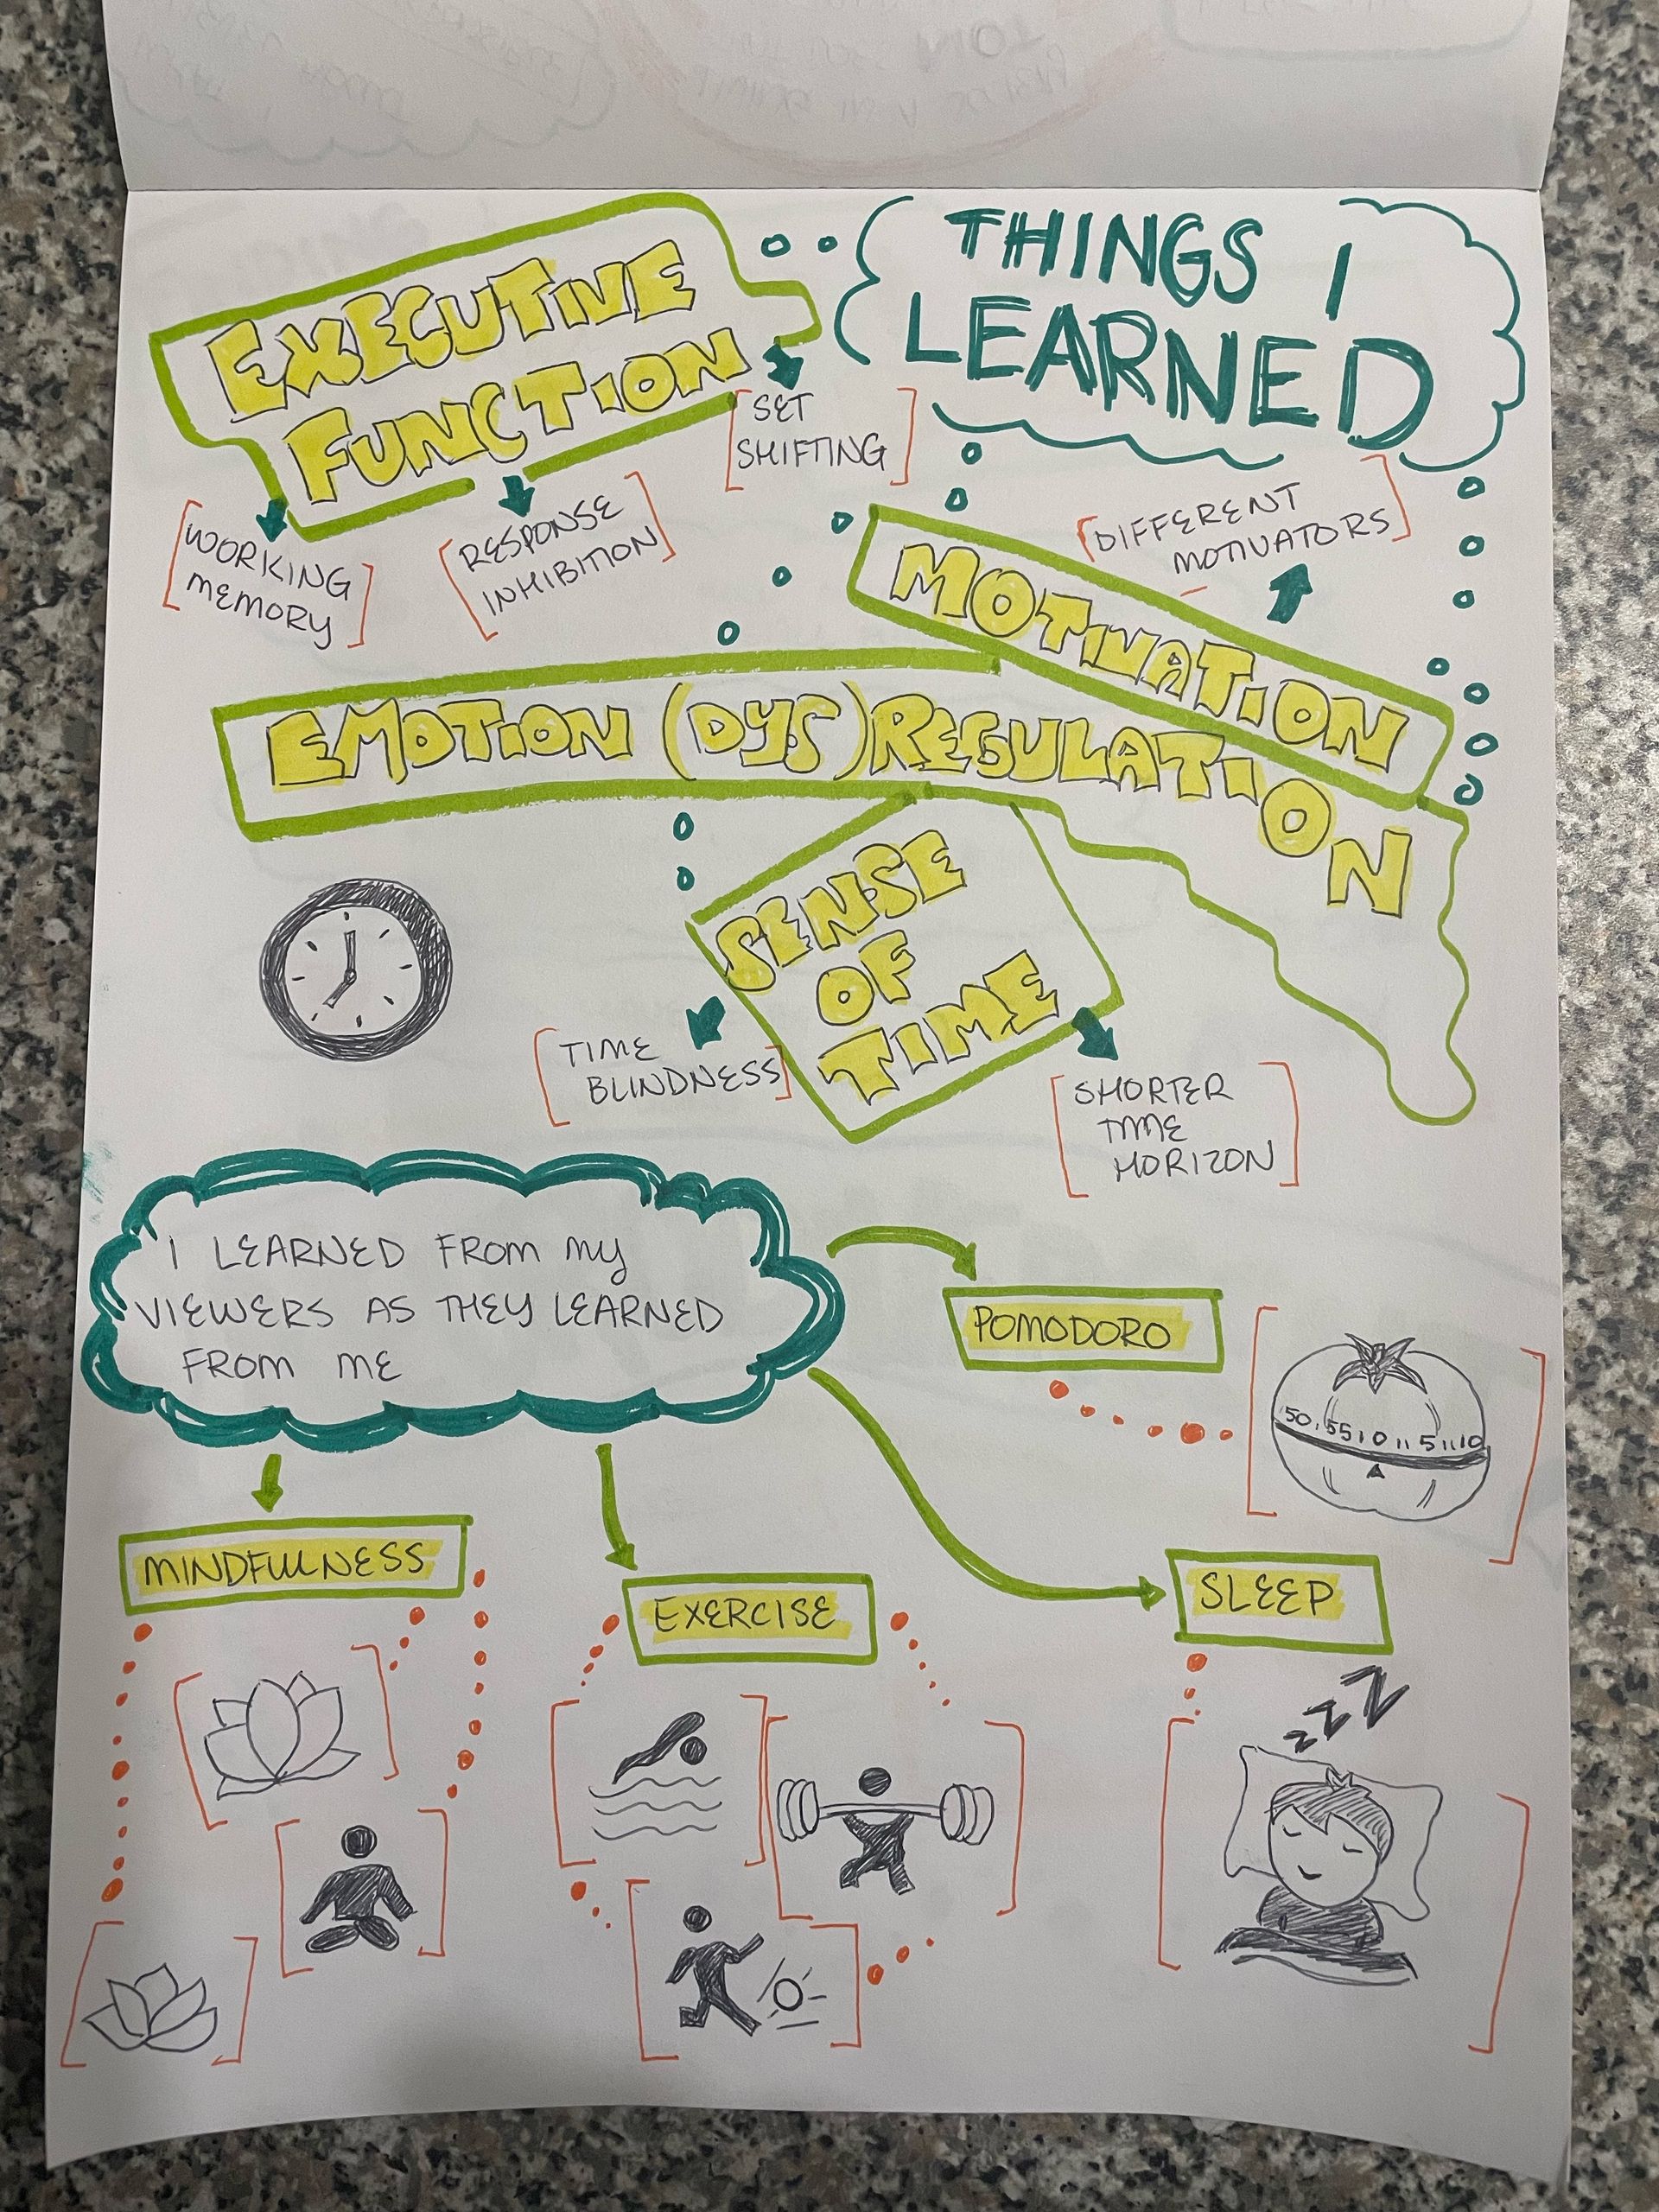 THINGS I
LEARNED
EXECUTIVE
FUNCTION
SET
SHIFTING
WORKING
MEMORY
RESPONSE
INHIBITION
DIFFERENT
MOTIVATORS
MOTIVATION
EMOTION (DYS)REGULATION
SENSE
OF
TIME
TIME
BLINDNESS
SHORTER
TIME
HORIZON
I LEARNED FROM MY
VIEWERS AS THEY LEARNED
FROM ME
POMODORO
50 55 0 5 10
MINDFULNESS
EXERCISE
SLEEP
ZZZ